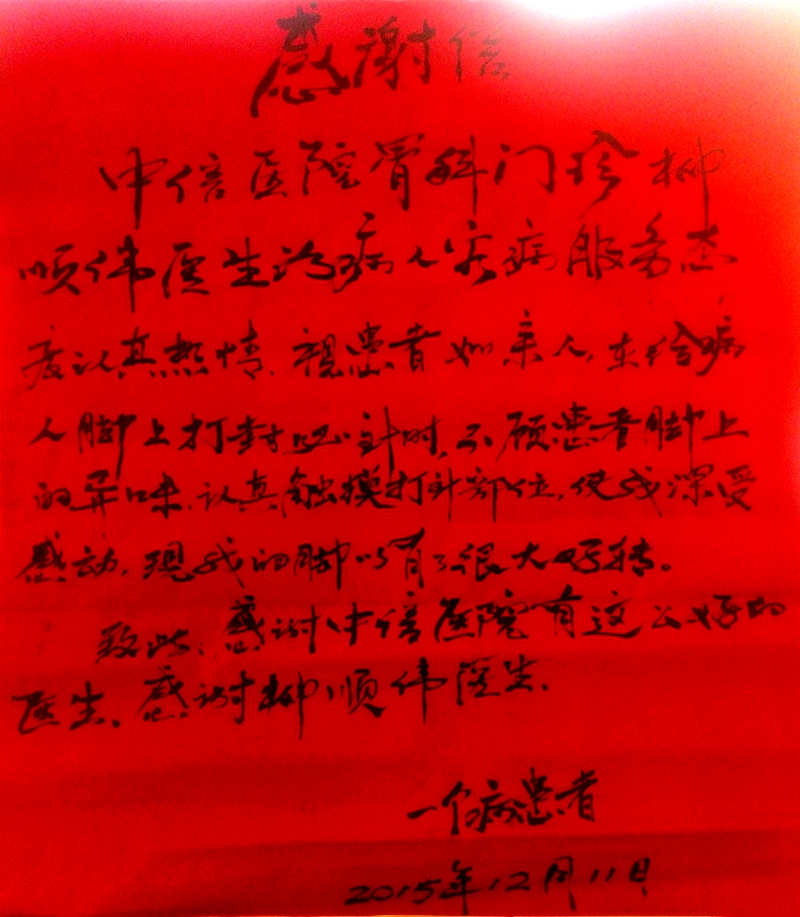 感谢信
中信医院骨科门珍柳
顺伟医生为病人客病服务态
度认真热情，视患者如亲人，在给病
人脚上打封闭针时，不顾患者脚上
的异味，认真触摸打针部位，使我深受
感动，现我的脚以有了很大好转。
致此，感谢中信医院有这么好的
医生，感谢柳顺伟医生。
一个病患者
2015年12月11日